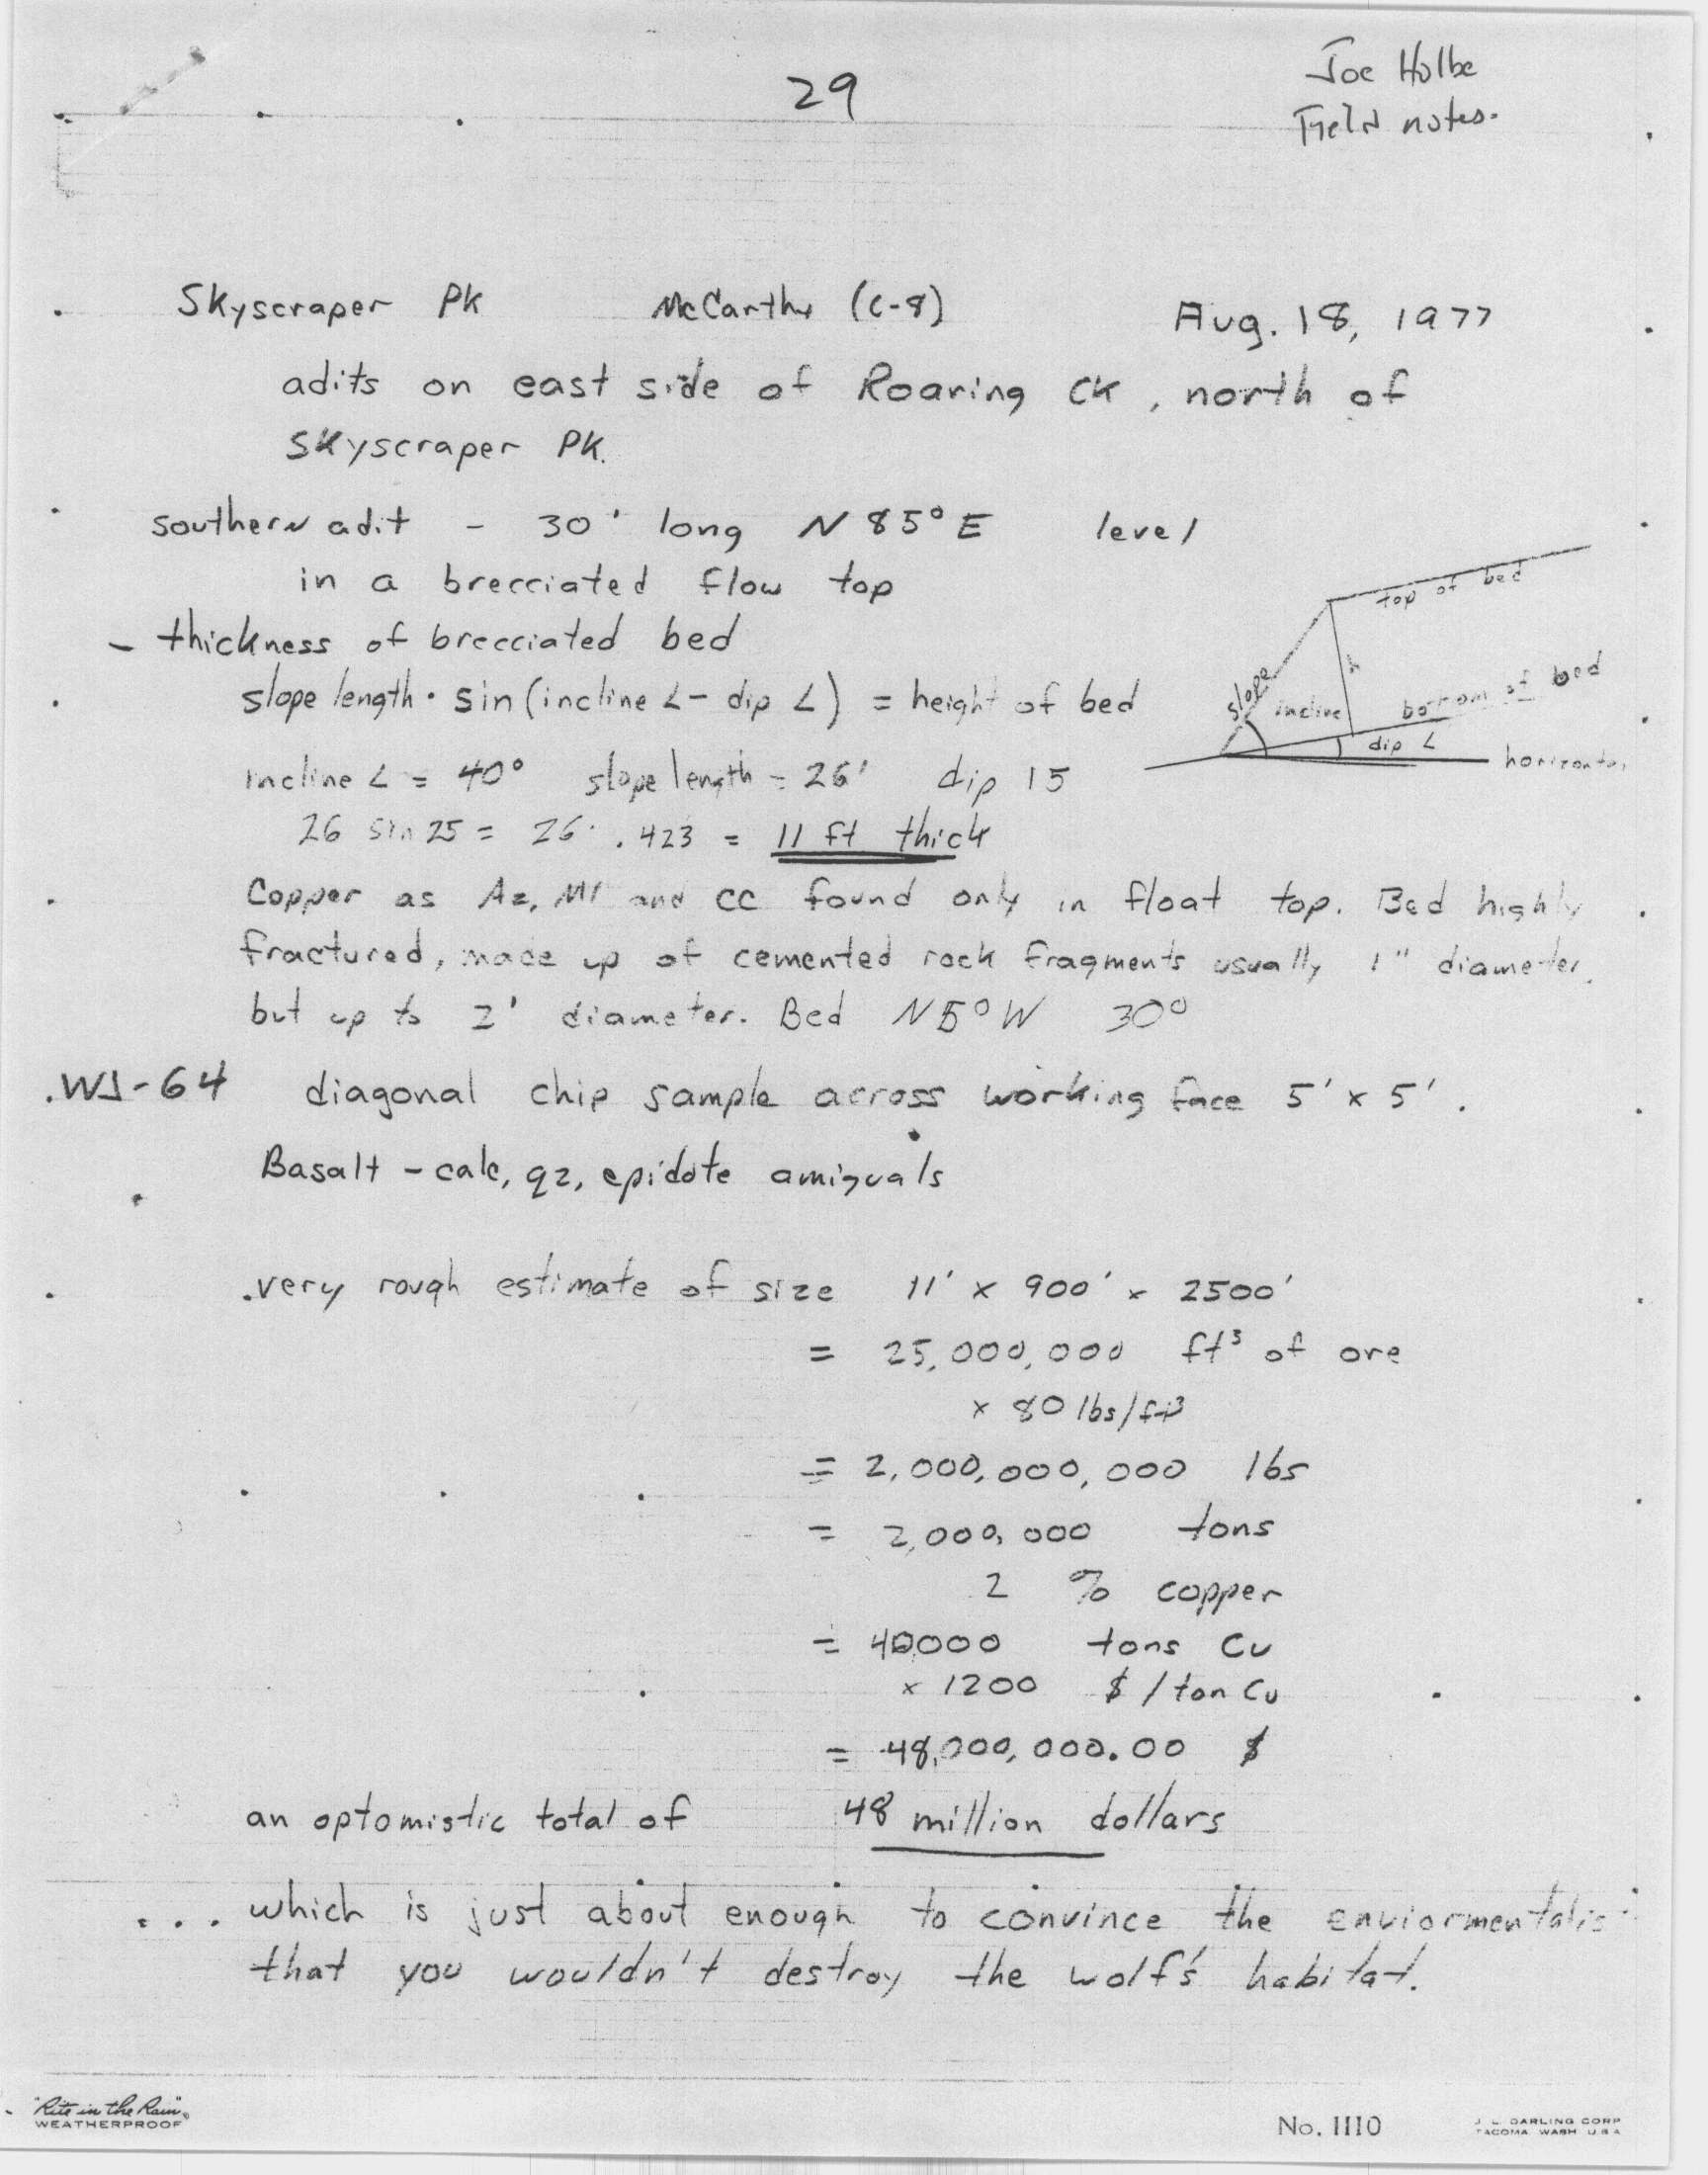 29
Joe Holbe
Field notes.
Skyscraper PK McCarthy (C-8) Aug. 18, 1977
adits on east side of Roaring CK, north of
Skyscraper PK.
southern adit - 30' long N 85° E level
in a brecciated flow top
- thickness of brecciated bed
slope length · sin (incline ∠ - dip ∠) = height of bed
incline ∠ = 40° slope length = 26' dip 15
26 sin 25 = 26 · .423 = 11 ft thick
top of bed
h
slope
incline
bottom of bed
dip ∠
horizontal
Copper as Az, Ml and cc found only in float top. Bed highly
fractured, made up of cemented rock fragments usually 1" diameter
but up to 2' diameter. Bed N 5° W 30°
WJ-64 diagonal chip sample across working face 5' x 5'.
Basalt - calc, qz, epidote amiguals
very rough estimate of size 11' x 900' x 2500'
= 25,000,000 ft³ of ore
x 80 lbs/ft³
= 2,000,000,000 lbs
= 2,000,000 tons
2 % copper
= 40000 tons Cu
x 1200 $/ton Cu
= 48,000,000.00 $
an optomistic total of 48 million dollars
... which is just about enough to convince the enviormentalist
that you wouldn't destroy the wolf's habitat.
"Rite in the Rain"
WEATHERPROOF
No. 1110
J. L. DARLING CORP
TACOMA, WASH U.S.A